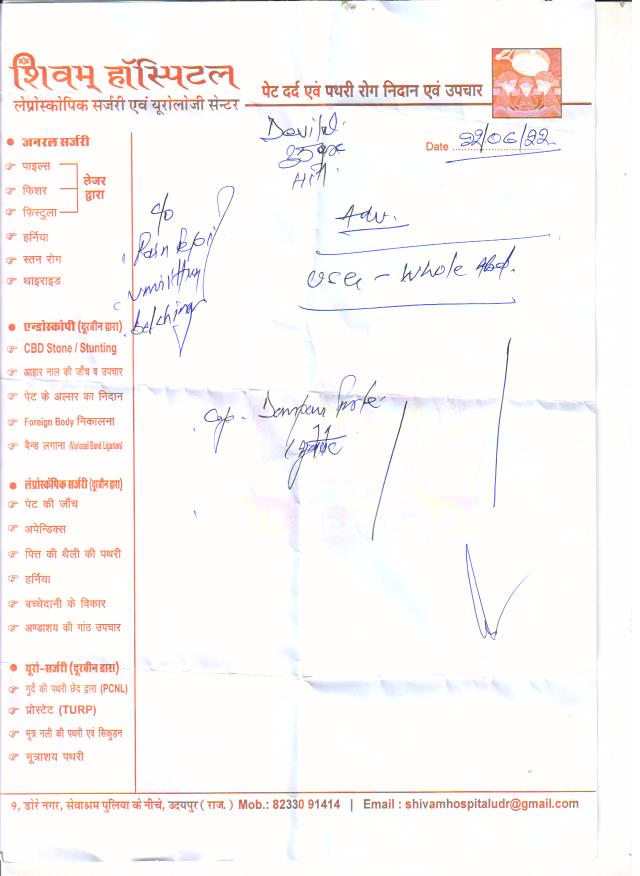 शिवम् हॉस्पिटल
लेप्रोस्कोपिक सर्जरी एवं यूरोलोजी सेन्टर
पेट दर्द एवं पथरी रोग निदान एवं उपचार
Date 22/06/22
Adv.
USG - Whole Abd.
C/O
Pain
belching
Cap.
जनरल सर्जरी
पाइल्स
फिशर
फिस्टुला
लेजर
द्वारा
हर्निया
स्तन रोग
थाइराइड
एन्डोस्कोपी (दूरबीन द्वारा)
CBD Stone / Stunting
आहार नाल की जाँच व उपचार
पेट के अल्सर का निदान
Foreign Body निकालना
बैन्ड लगाना (Variceal Band Ligation)
लेप्रोस्कोपिक सर्जरी (दूरबीन द्वारा)
पेट की जाँच
अपेन्डिक्स
पित्त की थैली की पथरी
हर्निया
बच्चेदानी के विकार
अण्डाशय की गांठ उपचार
यूरो-सर्जरी (दूरबीन द्वारा)
गुर्दे की पथरी छेद द्वारा (PCNL)
प्रोस्टेट (TURP)
मूत्र नली की पथरी एवं सिकुड़न
मूत्राशय पथरी
9, डोरे नगर, सेवाश्रम पुलिया के नीचे, उदयपुर ( राज. ) Mob.: 82330 91414 | Email : shivamhospitaludr@gmail.com